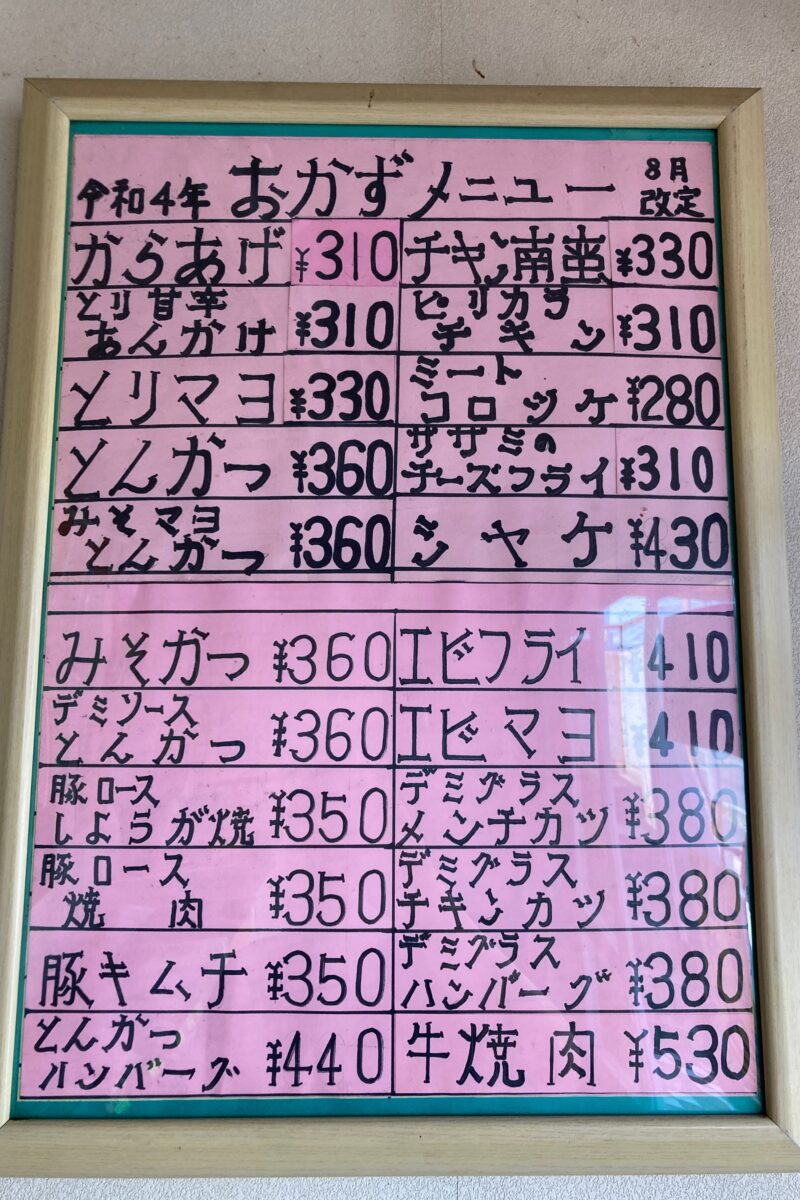 令和4年 おかずメニュー 8月改定
からあげ ¥310 チキン南蛮 ¥330
とり甘辛
あんかけ ¥310
ピリカラ
チキン ¥310
とりマヨ ¥330
ミート
コロッケ ¥280
とんかつ ¥360
ササミの
チーズフライ ¥310
みそマヨ
とんかつ ¥360
シャケ ¥430
みそかつ ¥360 エビフライ ¥410
デミソース
とんかつ ¥360
エビマヨ ¥410
豚ロース
しょうが焼 ¥350
デミグラス
メンチカツ ¥380
豚ロース
焼肉 ¥350
デミグラス
チキンカツ ¥380
豚キムチ ¥350
デミグラス
ハンバーグ ¥380
とんかつ
ハンバーグ ¥440
牛焼肉 ¥530